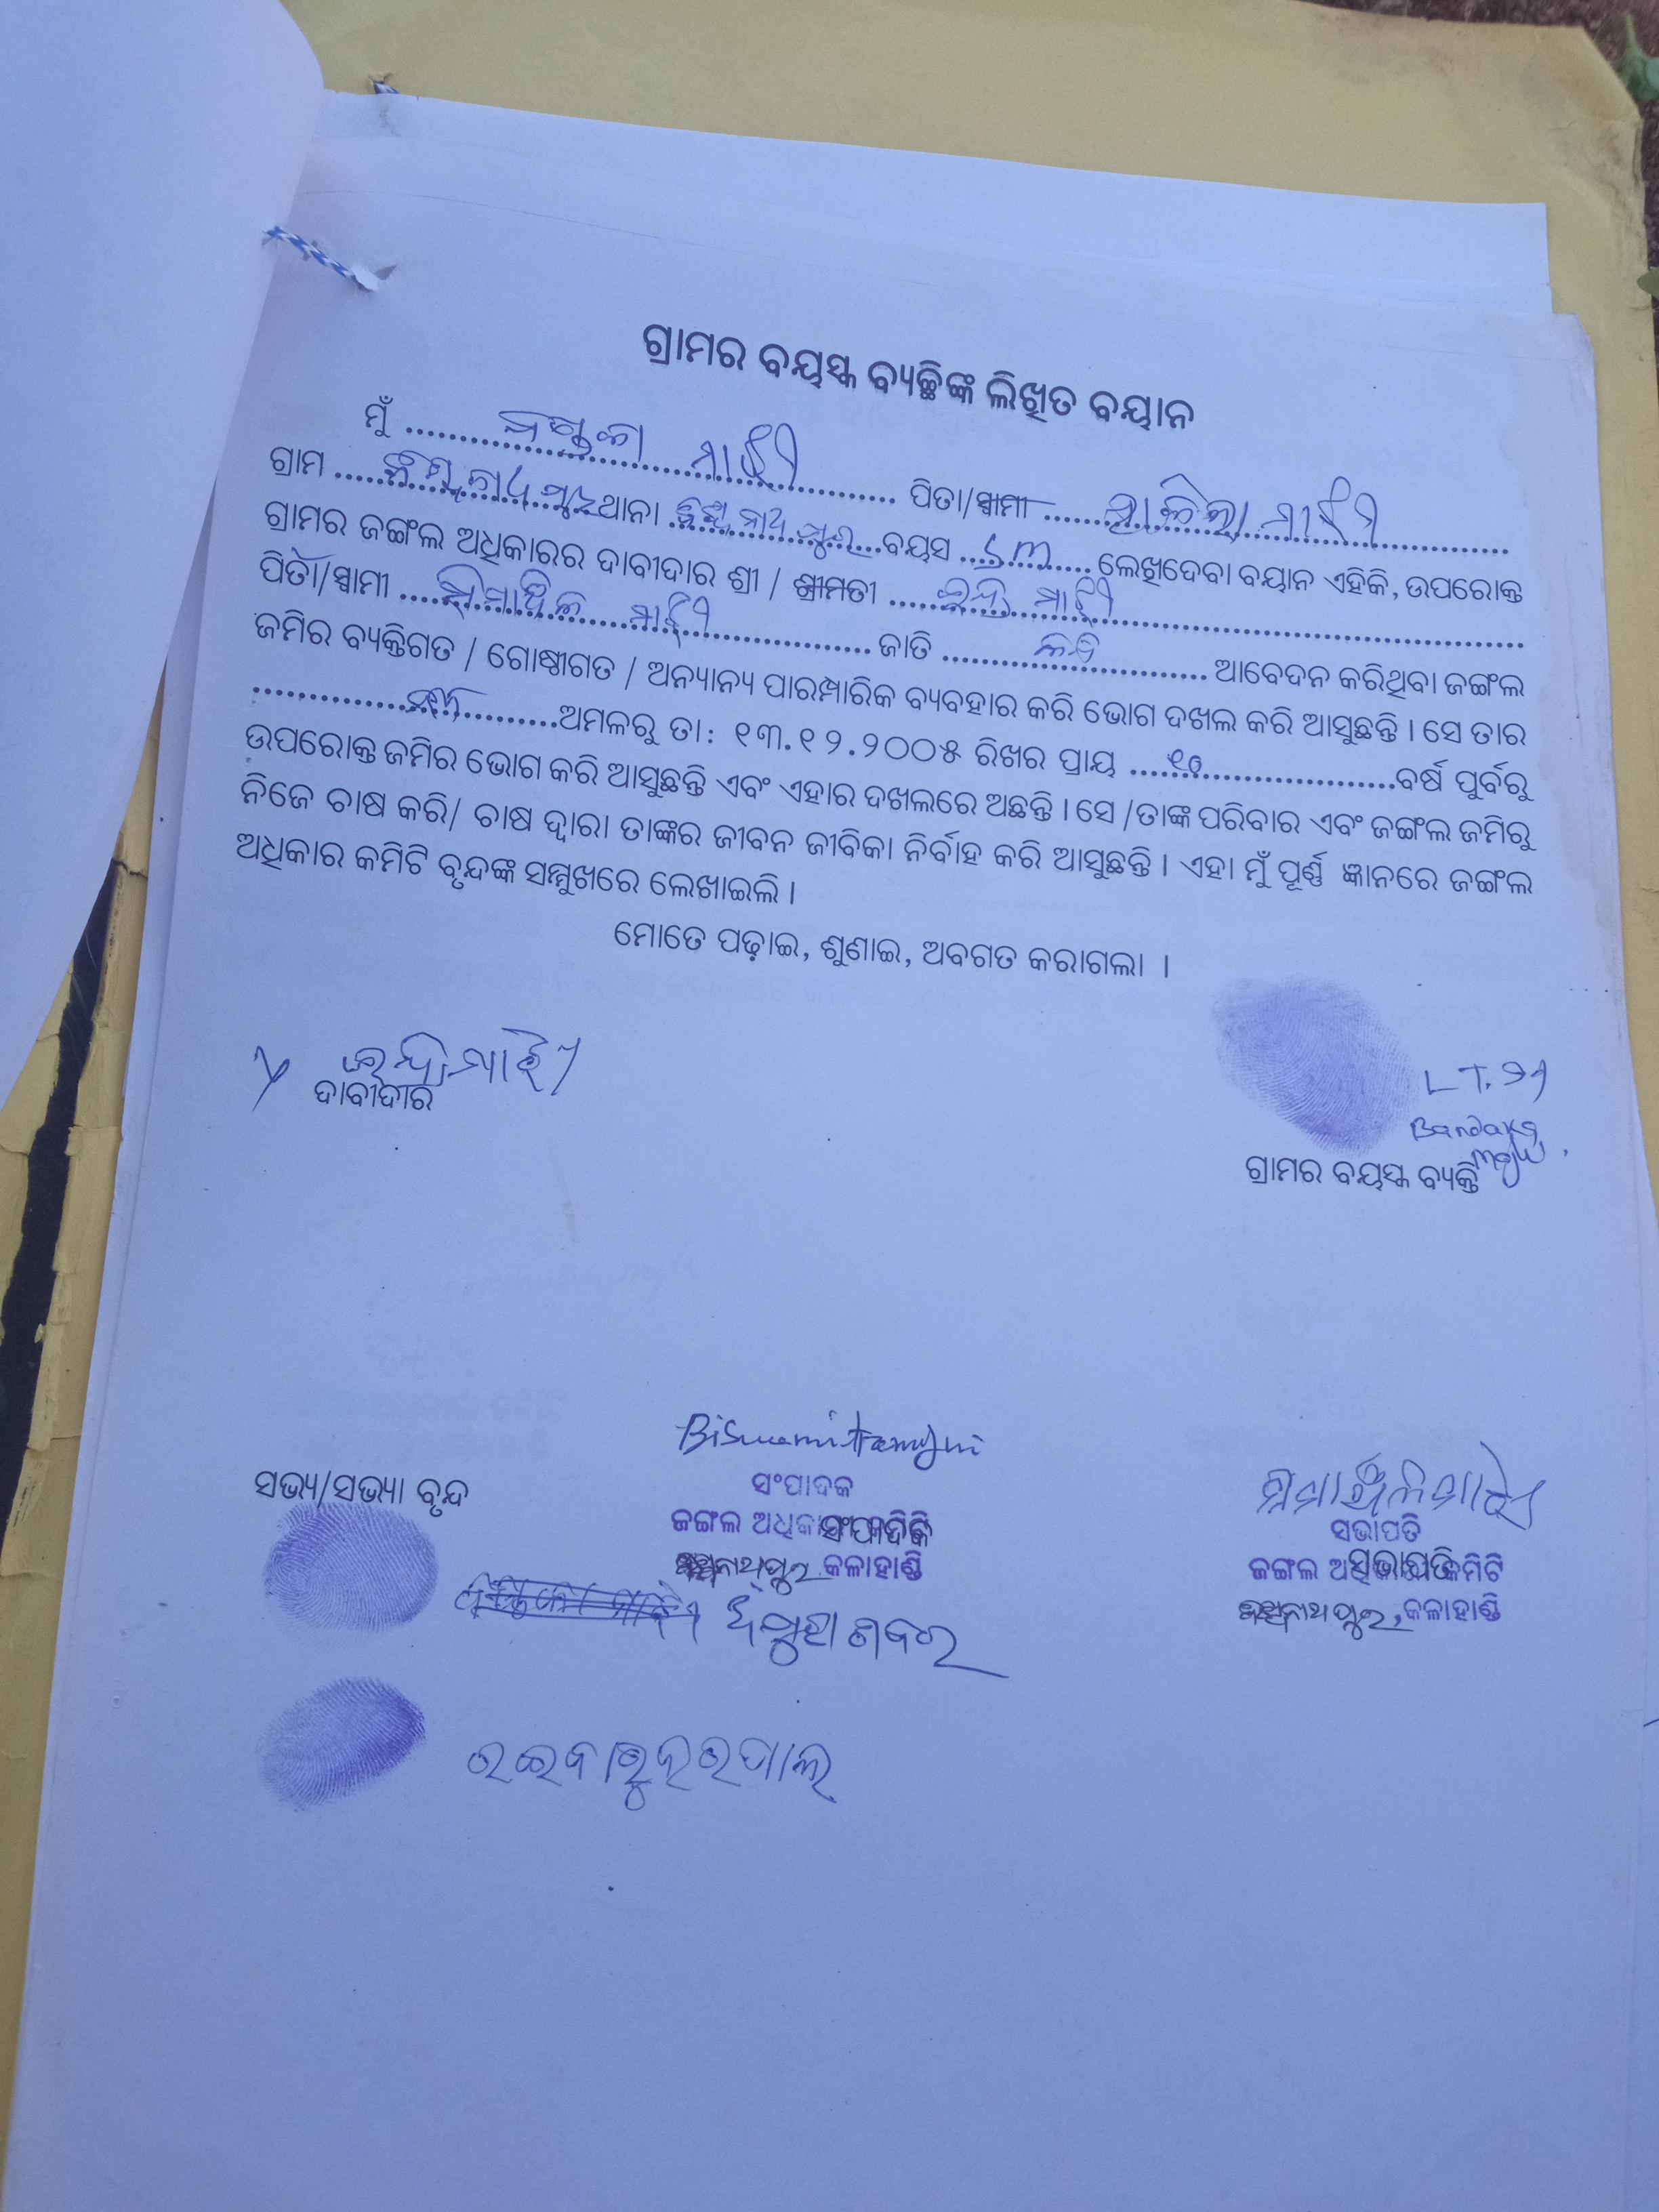 ଗ୍ରାମର ବୟସ୍କ ବ୍ୟକ୍ତିଙ୍କ ଲିଖିତ ବୟାନ
ମୁଁ .......... ମାଝୀ .......... ପିତା/ସ୍ଵାମୀ .......... ମାଝୀ ..........
ଗ୍ରାମ .......... ଥାନା .......... ବୟସ ..... ୬୩ ..... ଲେଖିଦେବା ବୟାନ ଏହିକି, ଉପରୋକ୍ତ
ଗ୍ରାମର ଜଙ୍ଗଲ ଅଧିକାରର ଦାବୀଦାର ଶ୍ରୀ / ଶ୍ରୀମତୀ .......... ଇନ୍ଦ୍ର ମାଝୀ ..........
ପିତା/ସ୍ଵାମୀ .......... ମାଝୀ .......... ଜାତି .......... ଆବେଦନ କରିଥିବା ଜଙ୍ଗଲ
ଜମିର ବ୍ୟକ୍ତିଗତ / ଗୋଷ୍ଠୀଗତ / ଅନ୍ୟାନ୍ୟ ପାରମ୍ପାରିକ ବ୍ୟବହାର କରି ଭୋଗ ଦଖଲ କରି ଆସୁଛନ୍ତି । ସେ ତାର
.......... ଅମଳରୁ ତା: ୧୩.୧୨.୨୦୦୫ ରିଖର ପ୍ରାୟ ..... ୧୦ .......... ବର୍ଷ ପୁର୍ବରୁ
ଉପରୋକ୍ତ ଜମିର ଭୋଗ କରି ଆସୁଛନ୍ତି ଏବଂ ଏହାର ଦଖଲରେ ଅଛନ୍ତି । ସେ /ତାଙ୍କ ପରିବାର ଏବଂ ଜଙ୍ଗଲ ଜମିରୁ
ନିଜେ ଚାଷ କରି/ ଚାଷ ଦ୍ଵାରା ତାଙ୍କର ଜୀବନ ଜୀବିକା ନିର୍ବାହ କରି ଆସୁଛନ୍ତି । ଏହା ମୁଁ ପୂର୍ଣ୍ଣ ଜ୍ଞାନରେ ଜଙ୍ଗଲ
ଅଧିକାର କମିଟି ବୃନ୍ଦଙ୍କ ସମ୍ମୁଖରେ ଲେଖାଇଲି ।
ମୋତେ ପଢ଼ାଇ, ଶୁଣାଇ, ଅବଗତ କରାଗଲା ।
ଇନ୍ଦ୍ର ମାଝୀ
ଦାବୀଦାର
ଗ୍ରାମର ବୟସ୍କ ବ୍ୟକ୍ତି
ସଭ୍ୟ/ସଭ୍ୟା ବୃନ୍ଦ
ସଂପାଦକ
ଜଙ୍ଗଲ ସଂପାଦକ
କଳାହାଣ୍ଡି
ସଭାପତି
ଜଙ୍ଗଲ ସଭାପତି କମିଟି
କଳାହାଣ୍ଡି